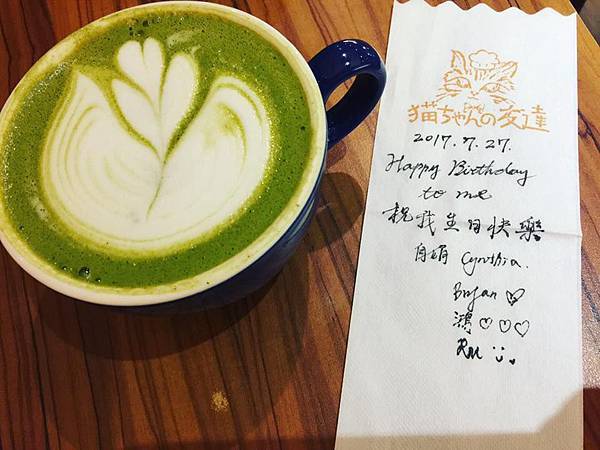 猫ちゃんの友達
2017.7.27.
Happy Birthday
to me
祝我生日快樂
Cynthia.
Bryan
鴻
RM